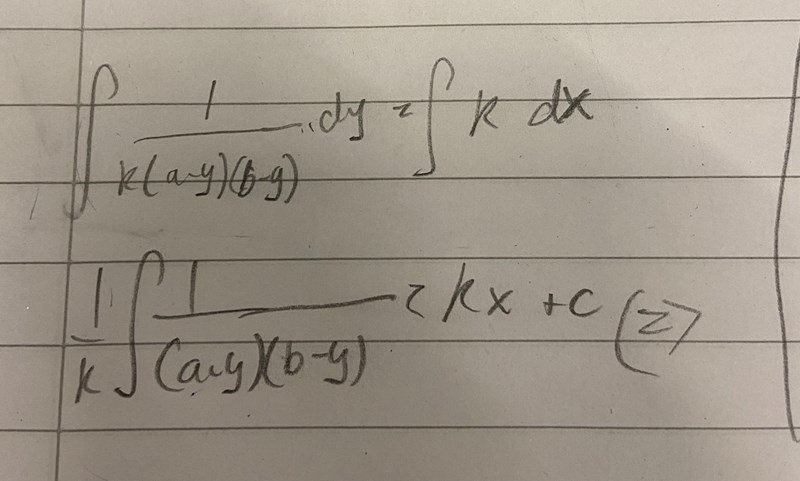 ∫ 1/(k(a-y)(b-y)) dy = ∫ k dx
1/k ∫ 1/((a-y)(b-y)) = kx + c (=>